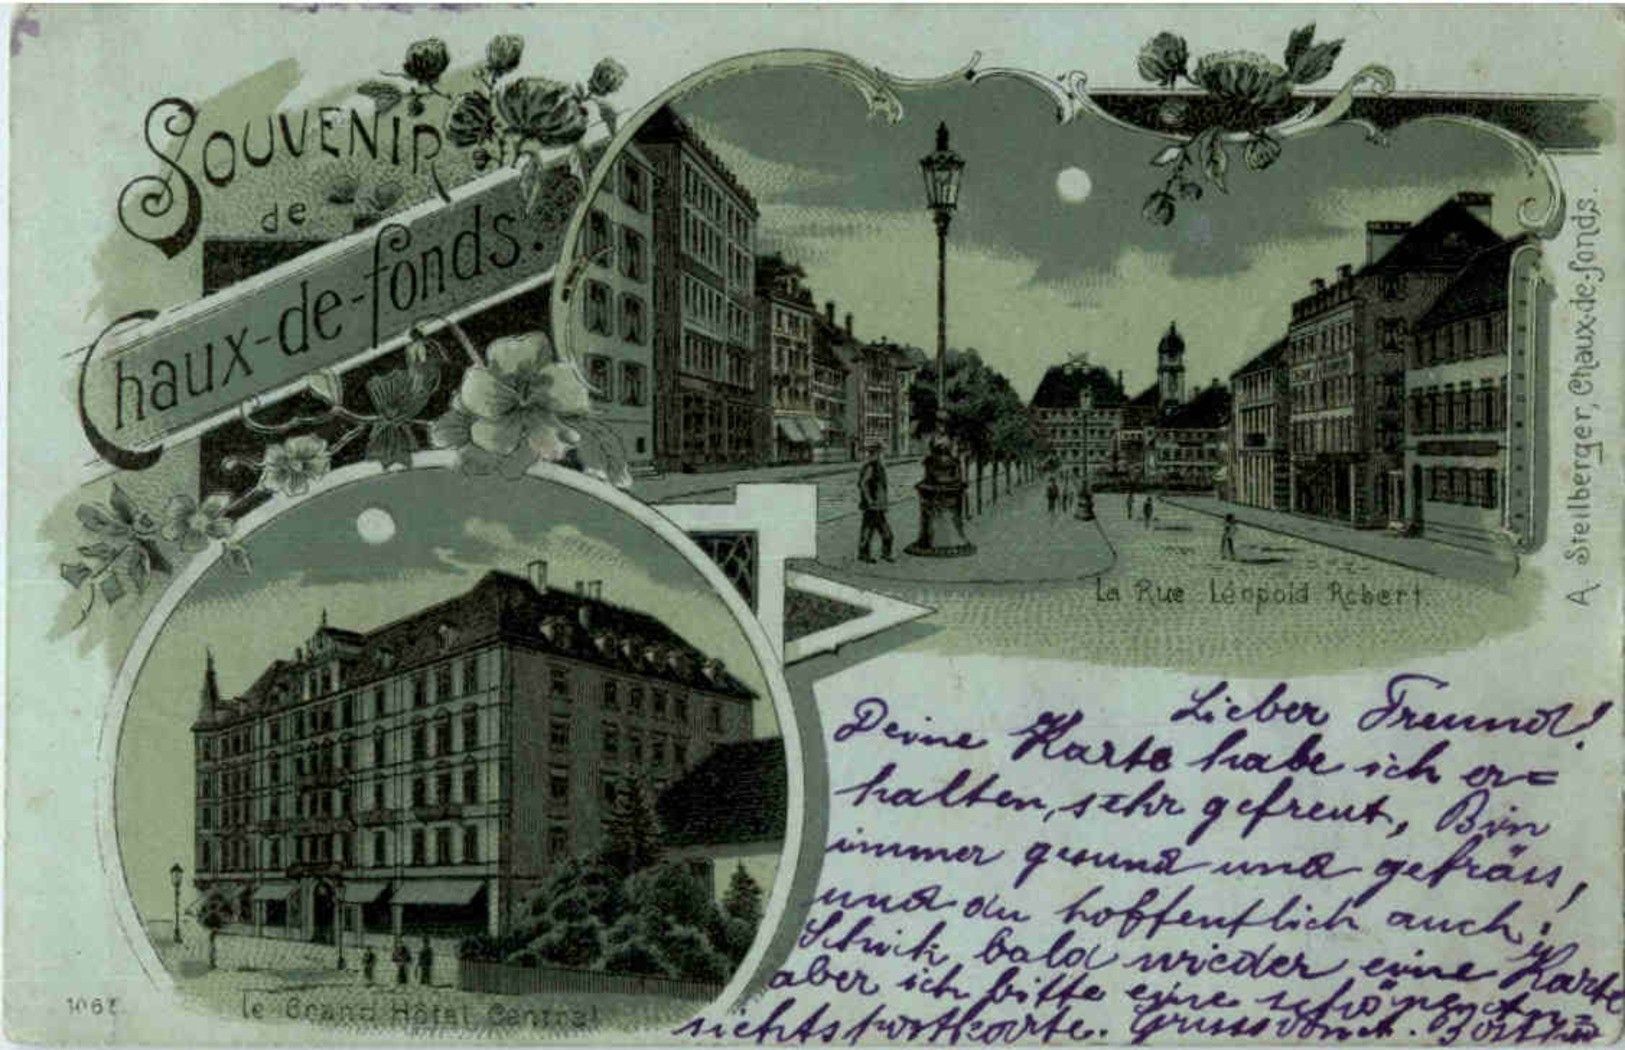 SOUVENIR
de
Chaux-de-fonds.
La Rue Léopold Robert.
A. Steilberger, Chaux-de-fonds.
Le Grand Hôtel Central
Lieber Freund!
Deine Karte habe ich er=
halten, sehr gefreut, Bin
immer gesund und gefräss,
und du hoffentlich auch;
Schik bald wieder eine Karte
aber ich bitte eine schöne An=
sichtspostkarte. Gruss von